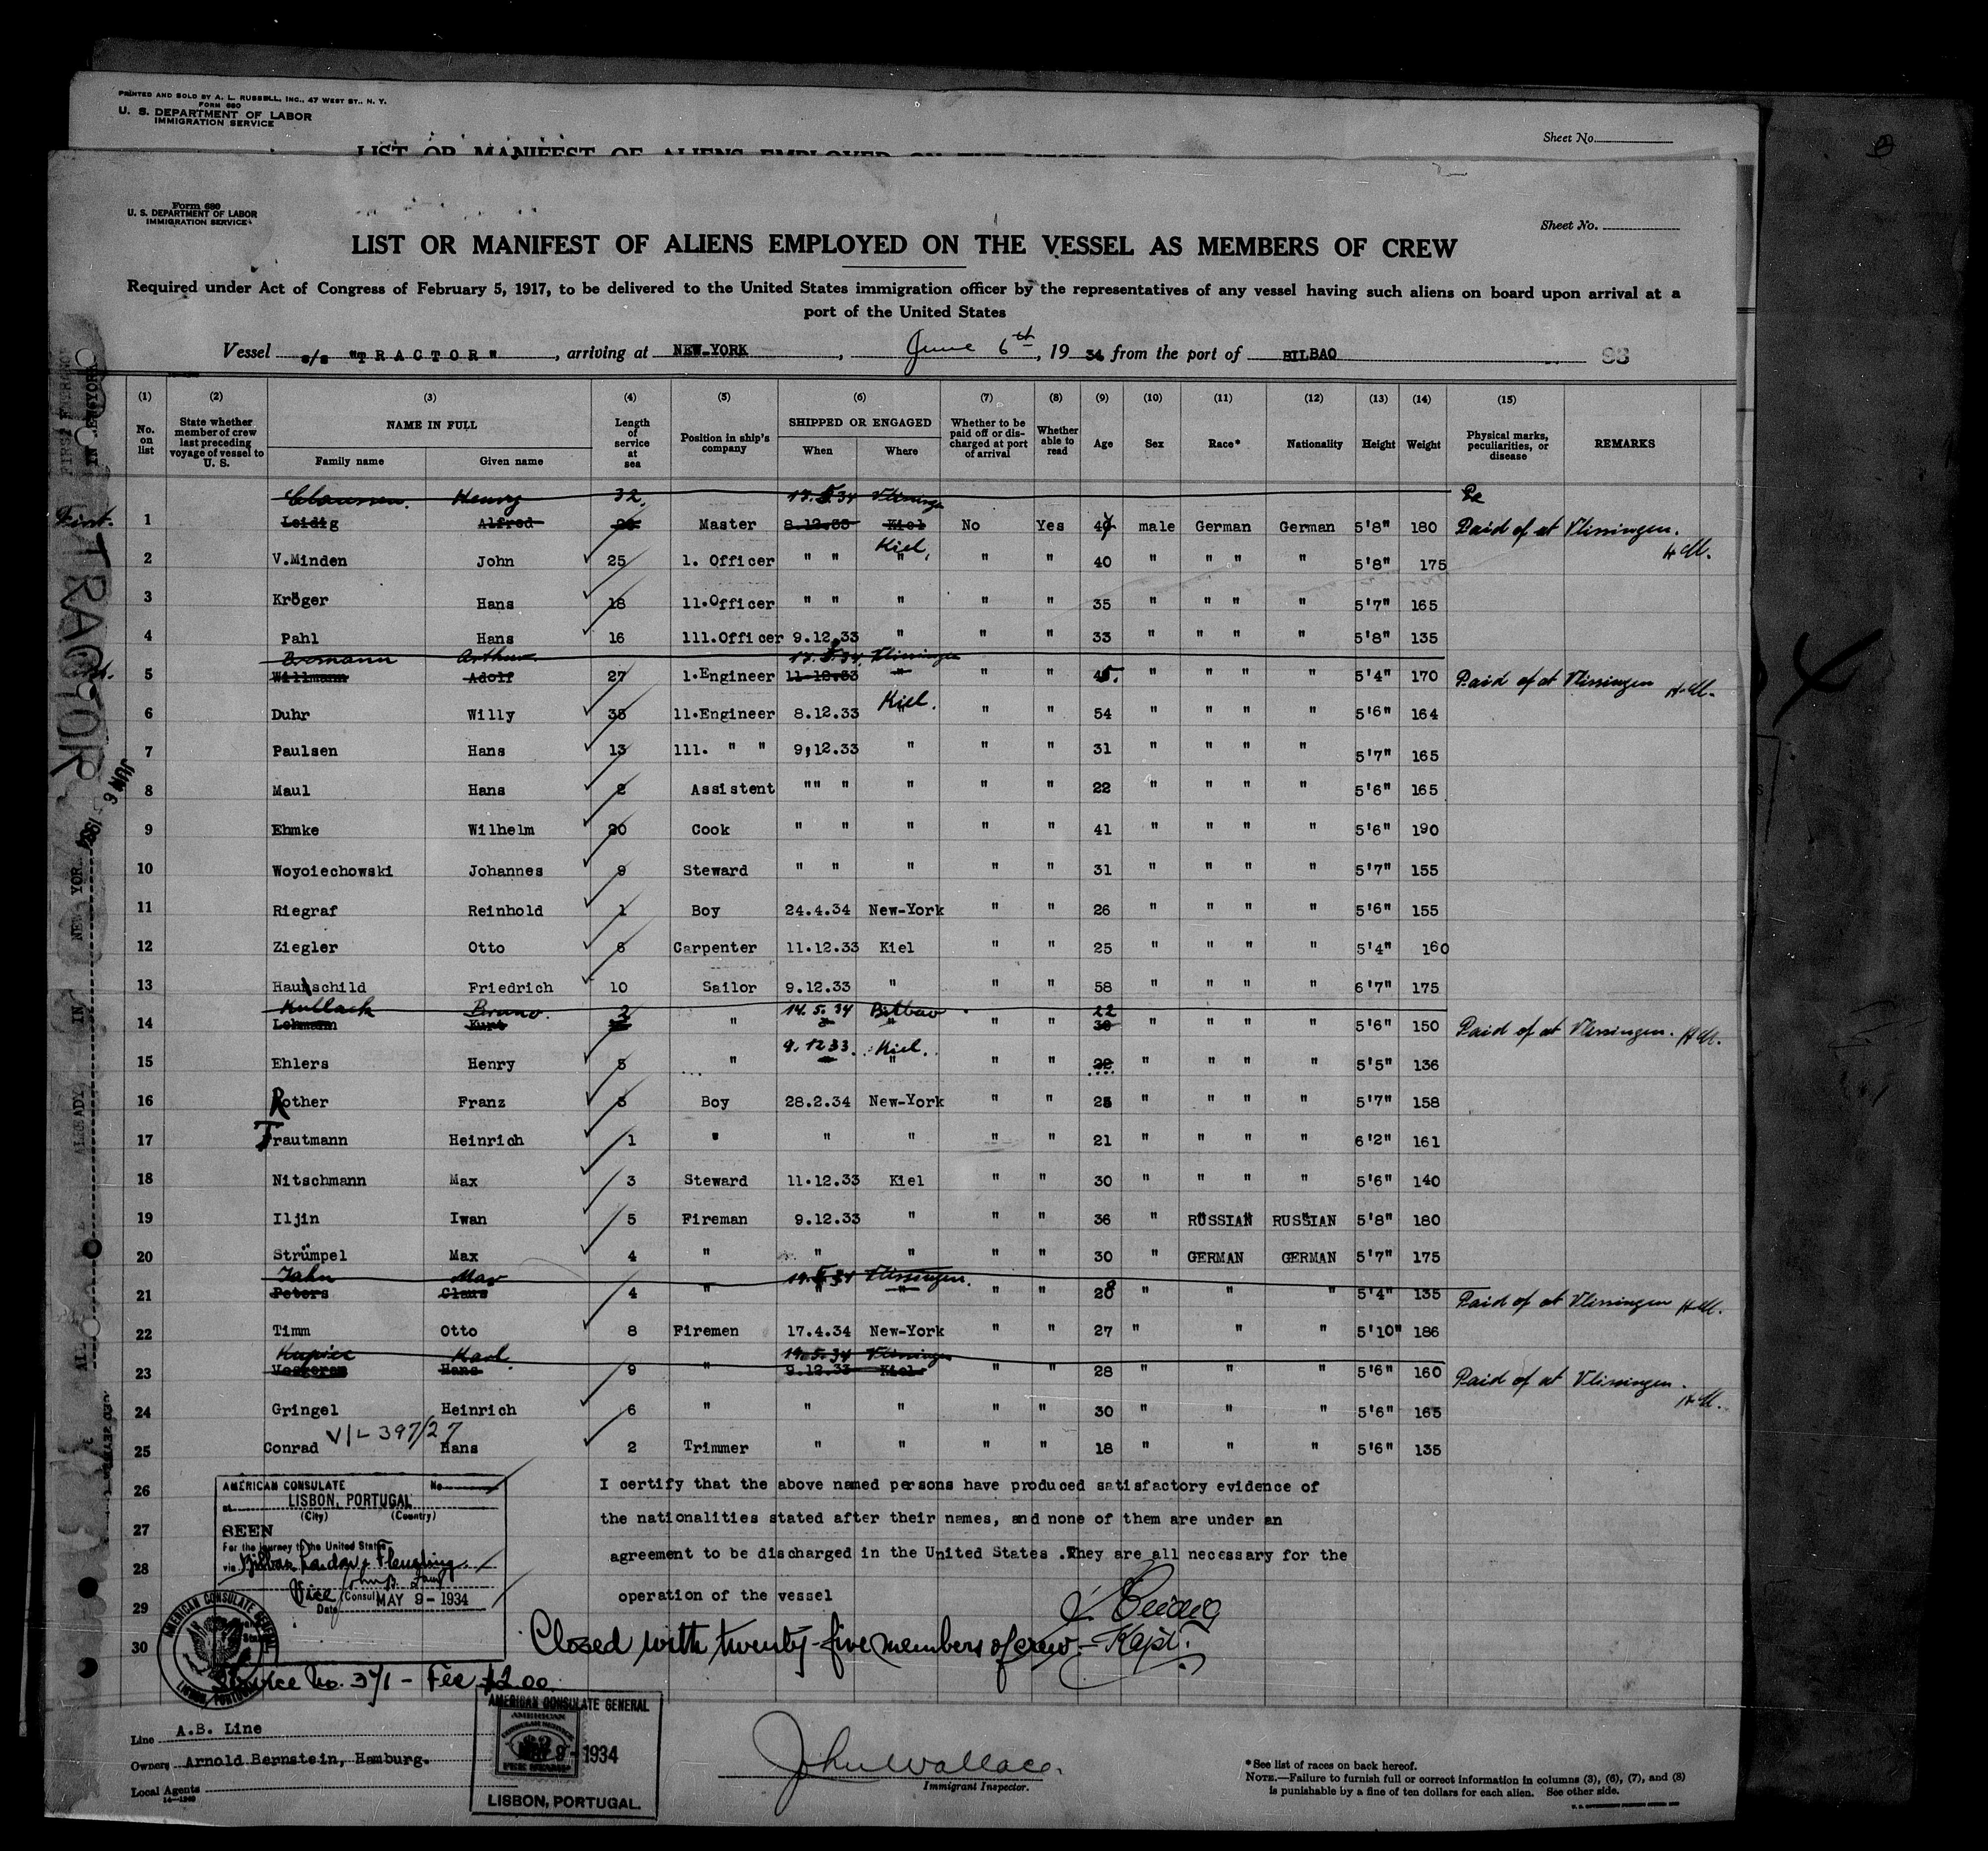 PRINTED AND SOLD BY A. L. RUSSELL, INC., 47 WEST ST., N. Y.
FORM 680
U. S. DEPARTMENT OF LABOR
IMMIGRATION SERVICE
Sheet No.
LIST OR MANIFEST OF ALIENS EMPLOYED ON THE VESSEL
Form 680
U. S. DEPARTMENT OF LABOR
IMMIGRATION SERVICE
Sheet No.
LIST OR MANIFEST OF ALIENS EMPLOYED ON THE VESSEL AS MEMBERS OF CREW
Required under Act of Congress of February 5, 1917, to be delivered to the United States immigration officer by the representatives of any vessel having such aliens on board upon arrival at a
port of the United States
Vessel s/s "TRACTOR", arriving at NEW-YORK, June 6th, 1934 from the port of BILBAO 98
(1) (2) (3) (4) (5) (6) (7) (8) (9) (10) (11) (12) (13) (14) (15)
No. on list
State whether member of crew last preceding voyage of vessel to U. S.
NAME IN FULL
Family name Given name
Length of service at sea
Position in ship's company
SHIPPED OR ENGAGED
When Where
Whether to be paid off or discharged at port of arrival
Whether able to read
Age Sex Race* Nationality Height Weight
Physical marks, peculiarities, or disease
REMARKS
Claussen. Henry 32. 17.5.34 Vlissingen
First. 1 Leidig Alfred Master 8.12.33 Kiel No Yes male German German 5'8" 180 Paid of at Vlissingen.
2 V.Minden John 25 1. Officer " " Kiel, " " " 40 " " " " 5'8" 175
3 Kröger Hans 18 11.Officer " " " " " 35 " " " " 5'7" 165
4 Pahl Hans 16 111.Officer 9.12.33 " " " 33 " " " " 5'8" 135
Arthur 17.5.34 Vlissingen
5 Willmann Adolf 27 1.Engineer 11.12.33 " " " 45. " " " " 5'4" 170 Paid of at Vlissingen
6 Duhr Willy 35 11.Engineer 8.12.33 Kiel. " " " 54 " " " " 5'6" 164
7 Paulsen Hans 13 111. " " 9,12.33 " " " 31 " " " " 5'7" 165
8 Maul Hans 2 Assistent "" " " " " 22 " " " " 5'6" 165
9 Ehmke Wilhelm 20 Cook " " " " " 41 " " " " 5'6" 190
10 Woyoiechowski Johannes 9 Steward " " " " " 31 " " " " 5'7" 155
11 Riegraf Reinhold 1 Boy 24.4.34 New-York " " 26 " " " " 5'6" 155
12 Ziegler Otto 6 Carpenter 11.12.33 Kiel " " 25 " " " " 5'4" 160
13 Hauschild Friedrich 10 Sailor 9.12.33 " " " 58 " " " " 6'7" 175
Kullack Bruno. 2 14.5.34 Bilbao 22
14 Lehmann Kurt " " " " 30 " " " " 5'6" 150 Paid of at Vlissingen.
9.12 33. Kiel.
15 Ehlers Henry 5 " " " " " " " " 5'5" 136
16 Rother Franz 5 Boy 28.2.34 New-York " " 25 " " " " 5'7" 158
17 Trautmann Heinrich 1 " " " " " 21 " " " " 6'2" 161
18 Nitschmann Max 3 Steward 11.12.33 Kiel " " 30 " " " " 5'6" 140
19 Iljin Iwan 5 Fireman 9.12.33 " " " 36 " RUSSIAN RUSSIAN 5'8" 180
20 Strümpel Max 4 " " " " " 30 " GERMAN GERMAN 5'7" 175
Jahn Max 19.5.34 Vlissingen.
21 Peters Claus 4 " " " " " 28 " " " 5'4" 135 Paid of at Vlissingen
22 Timm Otto 8 Firemen 17.4.34 New-York " " 27 " " " 5'10" 186
Karl 19.5.34 Vlissingen
23 Hans 9 " 9.12.33 Kiel " " 28 " " " 5'6" 160 Paid of at Vlissingen.
24 Gringel Heinrich 6 " " " " " 30 " " " 5'6" 165
V/L 397/27
25 Conrad Hans 2 Trimmer " " " " 18 " " " 5'6" 135
26 I certify that the above named persons have produced satisfactory evidence of
27 the nationalities stated after their names, and none of them are under an
28 agreement to be discharged in the United States .They are all necessary for the
29 operation of the vessel
30 Closed with twenty-five members of crew - Kapt.
AMERICAN CONSULATE No
at LISBON, PORTUGAL
(City) (Country)
SEEN
For the journey to the United States
via Bilbao
Vice (Consul)
Date MAY 9 - 1934
AMERICAN CONSULATE GENERAL
LISBON, PORTUGAL
Service No. 371 - Fee $2.00
AMERICAN CONSULATE GENERAL
AMERICAN
CONSULAR SERVICE
$2
FEE STAMP
9 - 1934
LISBON, PORTUGAL.
Line A.B. Line
Owners Arnold Bernstein, Hamburg.
Local Agents
John Wallace.
Immigrant Inspector.
*See list of races on back hereof.
NOTE.—Failure to furnish full or correct information in columns (3), (6), (7), and (8)
is punishable by a fine of ten dollars for each alien. See other side.
TRACTOR
JUN 6 1934
NEW YORK
ALREADY IN